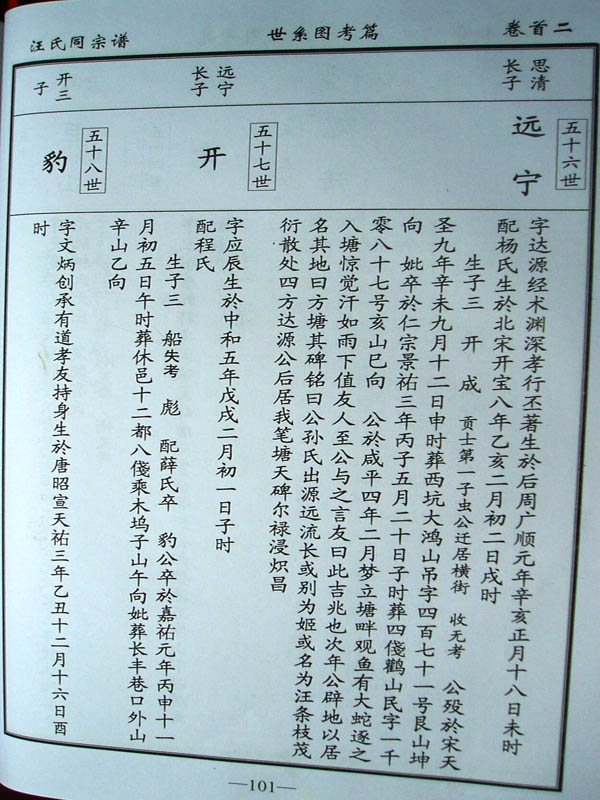 汪氏同宗谱
世系图考篇
卷首二
思清
长子
五十六世
远宁
字达源经术渊深孝行丕著生於后周广顺元年辛亥正月十八日未时
配杨氏生於北宋开宝八年乙亥二月初二日戌时
生子三 开 成 贡士第一子虫公迁居横街 收无考 公殁於宋天
圣九年辛未九月十二日申时葬西坑大鸿山吊字四百七十一号艮山坤
向 妣卒於仁宗景祐三年丙子五月二十日子时葬四伐鹳山民字一千
零八十七号亥山巳向 公於咸平四年二月梦立塘畔观鱼有大蛇逐之
入塘惊觉汗如雨下值友人至公与之言友曰此吉兆也次年公辟地以居
名其地曰方塘其碑铭曰公孙氏出源远流长或别为姬或名为汪条枝茂
衍散处四方达源公后居我笔塘天碑尔禄浸炽昌
远宁
长子
五十七世
开
字应辰生於中和五年戊戌二月初一日子时
配程氏
生子三 船失考 彪 配薛氏卒 豹公卒於嘉祐元年丙申十一
月初五日午时葬休邑十二都八伐乘木坞子山午向妣葬长丰巷口外山
辛山乙向
开三
子
五十八世
豹
字文炳创承有道孝友持身生於唐昭宣天祐三年乙丑十二月十六日酉
时
—101—